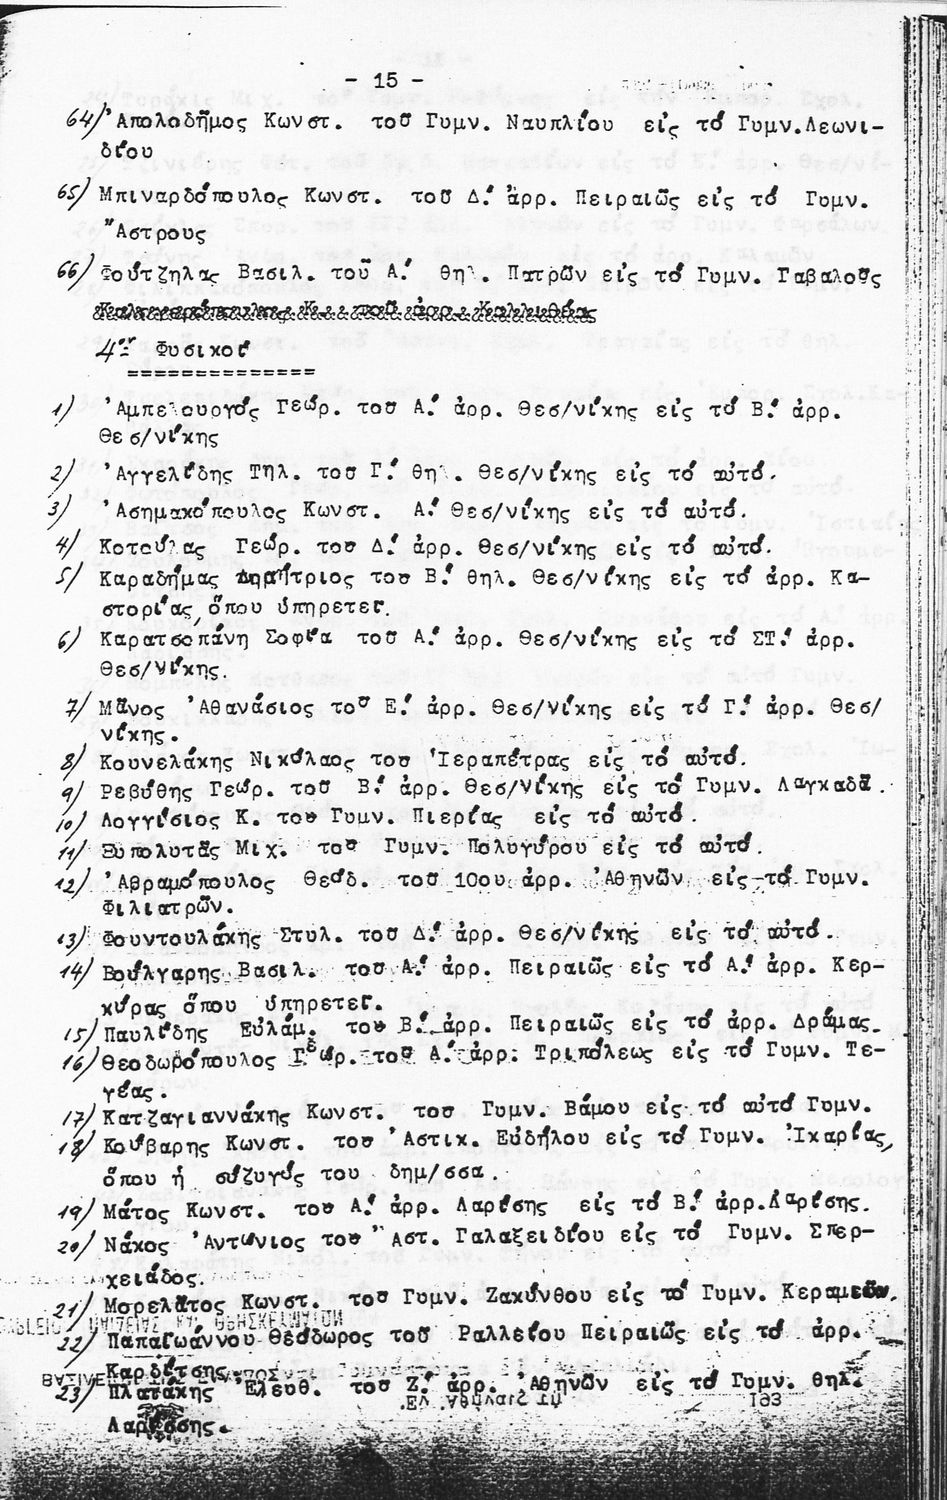 - 15 -
64) Ἀπολοδῆμος Κωνστ. τοῦ Γυμν. Ναυπλίου εἰς τό Γυμν.Λεωνι-
δίου
65) Μπιναρδόπουλος Κωνστ. τοῦ Δ.′ ἀρρ. Πειραιῶς εἰς τό Γυμν.
Ἄστρους
66) Φούτζηλας Βασιλ. του Α.′ θηλ. Πατρῶν εἰς τό Γυμν. Γαβαλοῦς
4ον Φυσικοί
===============
1) Ἀμπελουργός Γεώρ. τοῦ Α.′ ἀρρ. Θεσ/νίκης εἰς τό Β.′ ἀρρ.
Θεσ/νίκης
2) Ἀγγελίδης Τηλ. τοῦ Γ.′ θηλ. Θεσ/νίκης εἰς τό αὐτό.
3) Ἀσημακόπουλος Κωνστ. Α.′ Θεσ/νίκης εἰς τό αὐτό.
4) Κοτούλας Γεώρ. τοῦ Δ.′ ἀρρ. Θεσ/νίκης εἰς τό αὐτό.
5) Καραδήμας Δημήτριος τοῦ Β.′ θηλ. Θεσ/νίκης εἰς τό ἀρρ. Κα-
στορίας, ὅπου ὑπηρετεῖ.
6) Καρατσοπάνη Σοφία τοῦ Α.′ ἀρρ. Θεσ/νίκης εἰς τό ΣΤ.′ ἀρρ.
Θεσ/νίκης.
7) Μᾶνος Ἀθανάσιος τοῦ Ε.′ ἀρρ. Θεσ/νίκης εἰς τό Γ.′ ἀρρ. Θεσ/
νίκης.
8) Κουνελάκης Νικόλαος του Ἱεραπέτρας εἰς τό αὐτό.
9) Ρεβύθης Γεώρ. τοῦ Β.′ ἀρρ. Θεσ/νίκης εἰς τό Γυμν. Λαγκαδᾶ.
10) Λογγίσιος Κ. τοῦ Γυμν. Πιερίας εἰς τό αὐτό.
11) Ξυπολυτᾶς Μιχ. τοῦ Γυμν. Πολυγύρου εἰς τό αὐτό.
12) Ἀβραμόπουλος Θεόδ. τοῦ 10ου ἀρρ. Ἀθηνῶν εἰς τό Γυμν.
Φιλιατρῶν.
13) Φουντουλάκης Στυλ. τοῦ Δ.′ ἀρρ. Θεσ/νίκης εἰς τό αὐτό.
14) Βούλγαρης Βασιλ. τοῦ Α.′ ἀρρ. Πειραιῶς εἰς τό Α.′ ἀρρ. Κερ-
κύρας ὅπου ὑπηρετεῖ.
15) Παυλίδης Εὐλάμ. τοῦ Β.′ ἀρρ. Πειραιῶς εἰς τό ἀρρ. Δράμας.
16) Θεοδωρόπουλος Γεώρ. τοῦ Α.′ ἀρρ. Τριπόλεως εἰς τό Γυμν. Τε-
γέας.
17) Κατζαγιαννάκης Κωνστ. τοῦ Γυμν. Βάμου εἰς τό αὐτό Γυμν.
18) Κούβαρης Κωνστ. τοῦ Ἀστικ. Εὐδήλου εἰς τό Γυμν. Ἰκαρίας,
ὅπου ἡ σύζυγός του δημ/σσα.
19) Μάτος Κωνστ. τοῦ Α.′ ἀρρ. Λαρίσης εἰς τό Β.′ ἀρρ.Λαρίσης.
20) Νάκος Ἀντώνιος τοῦ Ἀστ. Γαλαξειδίου εἰς τό Γυμν. Σπερ-
χειάδος.
21) Μορελᾶτος Κωνστ. τοῦ Γυμν. Ζακύνθου εἰς τό Γυμν. Κεραμειῶν.
22) Παπαϊωάννου Θεόδωρος τοῦ Ραλλείου Πειραιῶς εἰς τό ἀρρ.
Καρδίτσης.
23) Πλατάκης Ἐλευθ. τοῦ Ζ.′ ἀρρ. Ἀθηνῶν εἰς τό Γυμν. θηλ.
Λαρίσσης.